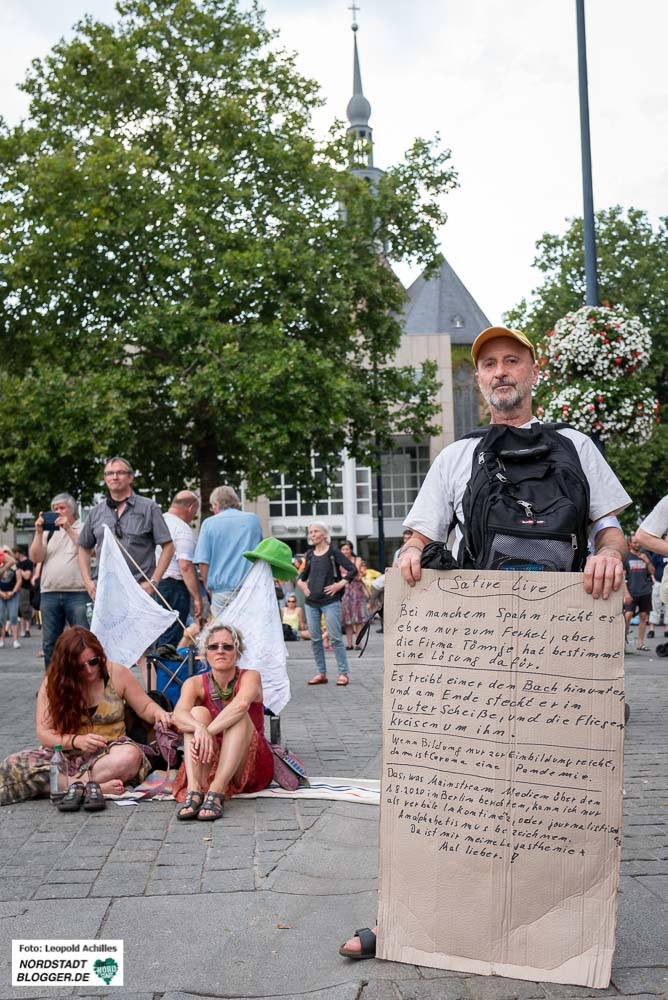 Satire Live
Bei manchem Spahn reicht es
eben nur zum Ferkel, aber
die Firma Tönnje hat bestimmt
eine Lösung dafür.
Es treibt einer den Bach hinunter
und am Ende steckt er in
lauter Scheiße, und die Fliegen
kreisen um ihn.
Wenn Bildung nur zur Einbildung reicht,
dann ist Corona eine Pandemie.
Das, was Mainstream Medien über den
1.8.2020 in Berlin berichten, kann ich nur
als verbale Inkontinenz, oder journalistischen
Analphabetismus bezeichnen.
Da ist mir meine Legasthenie
Mal lieber. !
Foto: Leopold Achilles
NORDSTADT
BLOGGER.DE
NORD